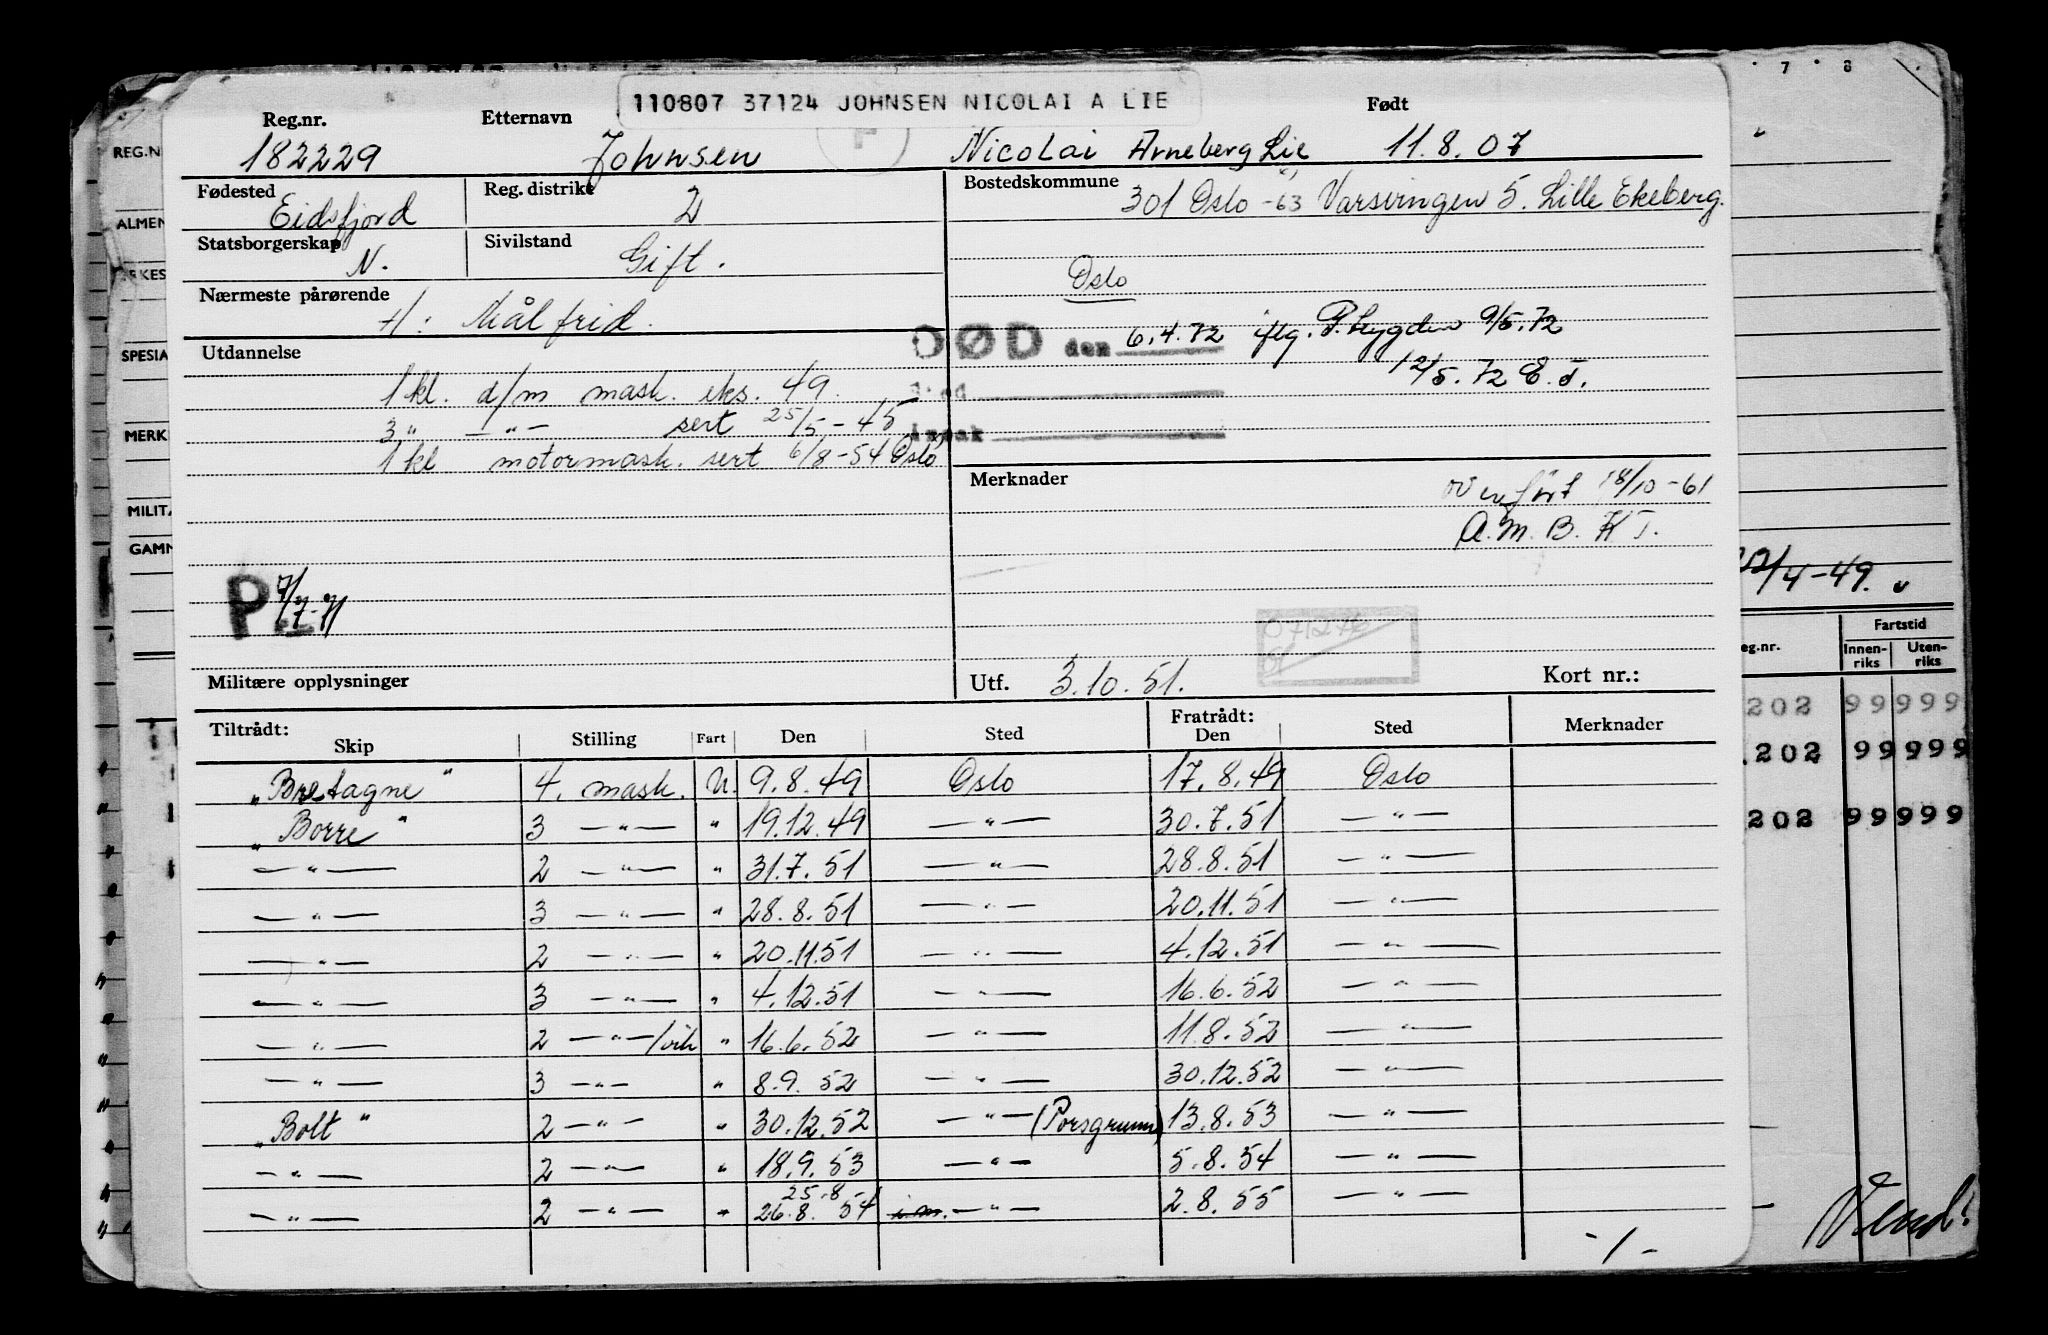 110807 37124 JOHNSEN NICOLAI A LIE
Reg.nr. Etternavn Født
182229 Johnsen Nicolai Arneberg Lie 11.8.07
Fødested Reg. distrikt Bostedskommune
Eidsfjord 2 301 Oslo -63 Varsvingen 5. Lille Ekeberg.
Statsborgerskap Sivilstand
N. Gift.
Oslo
Nærmeste pårørende
H: Målfrid.
DØD den 6.4.72 iflg. P. trygden 9/5.72
12/5.72 E.T.
Utdannelse
1 kl. d/m mask. eks. 49.
3 " — " — sert 25/5-45
1 kl motormask. sert 6/8-54 Oslo
Merknader
overført 18/10-61
A.M.B. K T.
P 7/7-71
071276
Militære opplysninger
Utf. 3.10.51. Kort nr.:
Tiltrådt: Fratrådt:
Skip Stilling Fart Den Sted Den Sted Merknader
"Bretagne" 4. mask. U. 9.8.49 Oslo 17.8.49 Oslo
"Borre" 3 — " — " 19.12.49 — " — 30.7.51 — " —
— " — 2 — " — " 31.7.51 — " — 28.8.51 — " —
— " — 3 — " — " 28.8.51 — " — 20.11.51 — " —
— " — 2 — " — " 20.11.51 — " — 4.12.51 — " —
— " — 3 — " — " 4.12.51 — " — 16.6.52 — " —
— " — 2 — " — /vik " 16.6.52 — " — 11.8.52 — " —
— " — 3 — " — " 8.9.52 — " — 30.12.52 — " —
"Bolt" 2 — " — " 30.12.52 — " — (Porsgrunn) 13.8.53 — " —
— " — 2 — " — " 18.9.53 — " — 5.8.54 — " —
25.8
— " — 2 — " — " 26.8.54 i m. — " — 2.8.55 — " —
-1-
REG.N
ALMEN
RKES
SPESIA
MERK
MILITÆ
GAMM
7 8
/4-49.
eg.nr. Fartstid
Innen-riks Uten-riks
202 99 999
.202 99 999
202 99 999
Vend!